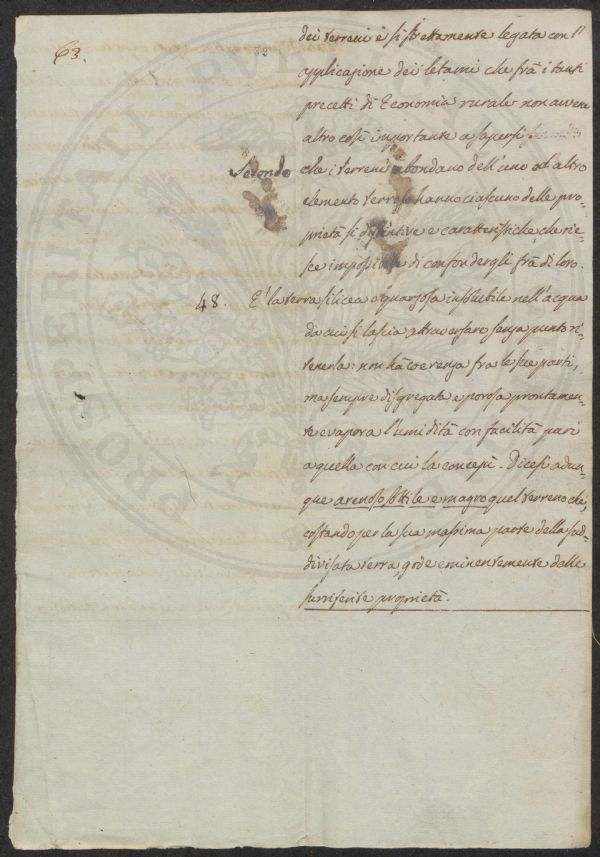 63.
dei terreni è sì strettamente legata con l'
applicazione dei letami che frà i tanti
precetti di Economia rurale non avvene
altro così importante a sapersi
Secondo che i terreni abondano dell'uno o l'altro
elemento terroso hanno ciascuno delle pro=
prietà sì distintive e caratteristiche, che rie=
sce impossibile di confondergli frà di loro.
48. E' la terra silicea o quarzosa insolubile nell'acqua
da cui si lascia attraversare senza punto ri=
tenerla: non hà coerenza fra le sue parti,
ma sempre disgregata e porosa prontamen=
te evapora l'umidità con facilità pari
a quella con cui la concepì. Dicesi adun=
que arenoso sottile e magro quel terreno che,
costando per la sua massima parte della sud=
divisata terra gode eminentemente delle
surriferite proprietà.
PROSPERITATI